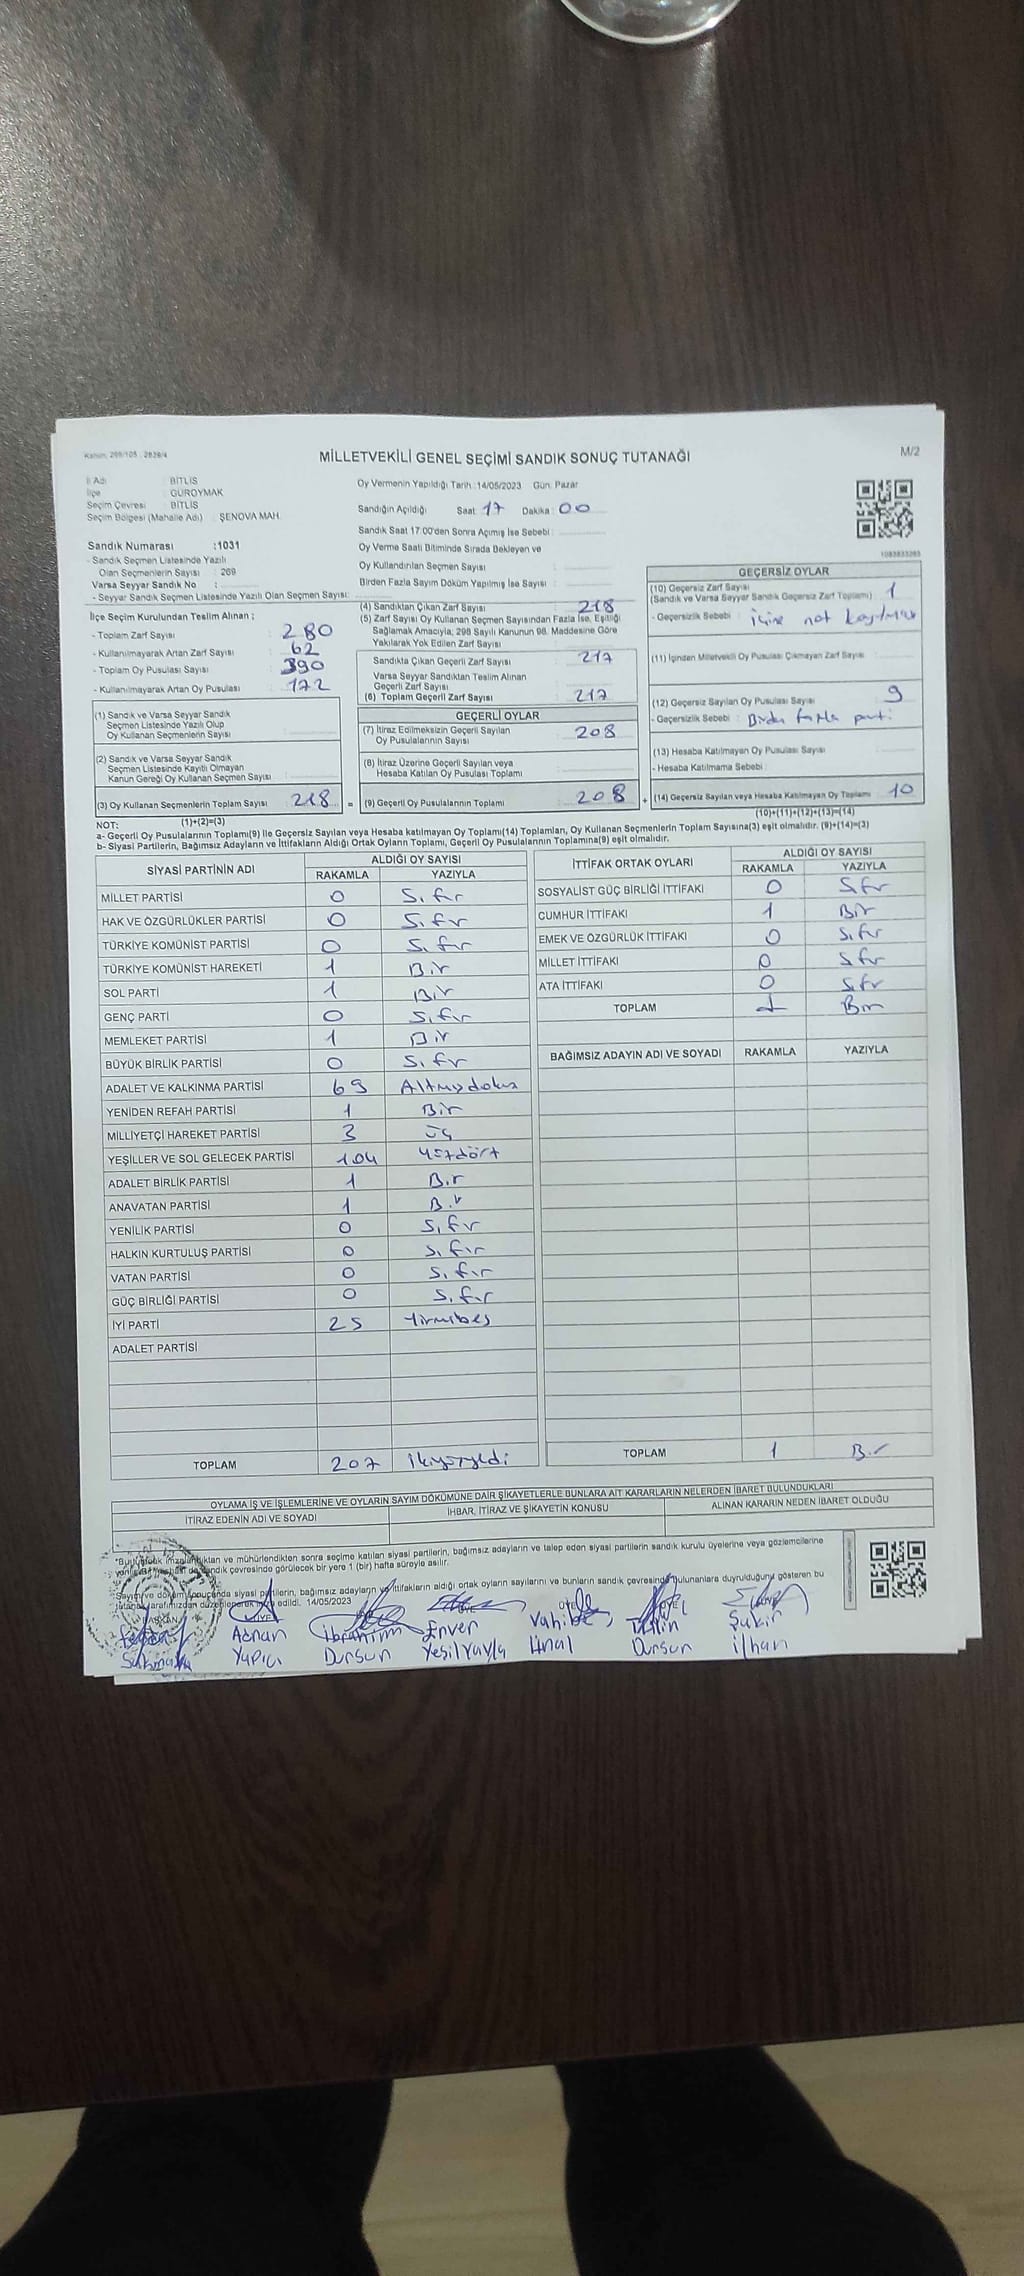 Kanun, 298/105 , 2839/4
M/2
MİLLETVEKİLİ GENEL SEÇİMİ SANDIK SONUÇ TUTANAĞI
İl Adı : BİTLİS
İlçe : GÜROYMAK
Seçim Çevresi : BİTLİS
Seçim Bölgesi (Mahalle Adı) : ŞENOVA MAH.
Sandık Numarası :1031
- Sandık Seçmen Listesinde Yazılı
Olan Seçmenlerin Sayısı : 269
Varsa Seyyar Sandık No :
- Seyyar Sandık Seçmen Listesinde Yazılı Olan Seçmen Sayısı:
Oy Vermenin Yapıldığı Tarih :14/05/2023 Gün: Pazar
Sandığın Açıldığı Saat: 17 Dakika : 00
Sandık Saat 17:00'den Sonra Açımış İse Sebebi :
Oy Verme Saati Bitiminde Sırada Bekleyen ve
Oy Kullandırılan Seçmen Sayısı :
Birden Fazla Sayım Döküm Yapılmış İse Sayısı :
İlçe Seçim Kurulundan Teslim Alınan ;
- Toplam Zarf Sayısı : 280
- Kullanılmayarak Artan Zarf Sayısı : 62
- Toplam Oy Pusulası Sayısı : 390
- Kullanılmayarak Artan Oy Pusulası : 172
(1) Sandık ve Varsa Seyyar Sandık
Seçmen Listesinde Yazılı Olup
Oy Kullanan Seçmenlerin Sayısı :
(2) Sandık ve Varsa Seyyar Sandık
Seçmen Listesinde Kayıtlı Olmayan
Kanun Gereği Oy Kullanan Seçmen Sayısı :
(3) Oy Kullanan Seçmenlerin Toplam Sayısı : 218 =
(1)+(2)=(3)
(4) Sandıktan Çıkan Zarf Sayısı : 218
(5) Zarf Sayısı Oy Kullanan Seçmen Sayısından Fazla İse, Eşitliği
Sağlamak Amacıyla, 298 Sayılı Kanunun 98. Maddesine Göre
Yakılarak Yok Edilen Zarf Sayısı :
Sandıkta Çıkan Geçerli Zarf Sayısı : 217
Varsa Seyyar Sandıktan Teslim Alınan
Geçerli Zarf Sayısı :
(6) Toplam Geçerli Zarf Sayısı : 217
GEÇERLİ OYLAR
(7) İtiraz Edilmeksizin Geçerli Sayılan
Oy Pusulalarının Sayısı : 208
(8) İtiraz Üzerine Geçerli Sayılan veya
Hesaba Katılan Oy Pusulası Toplamı :
(9) Geçerli Oy Pusulalarının Toplamı : 208 +
GEÇERSİZ OYLAR
(10) Geçersiz Zarf Sayısı
(Sandık ve Varsa Seyyar Sandık Geçersiz Zarf Toplamı) : 1
- Geçersizlik Sebebi : içine not
(11) İçinden Milletvekili Oy Pusulası Çıkmayan Zarf Sayısı :
(12) Geçersiz Sayılan Oy Pusulası Sayısı : 9
- Geçersizlik Sebebi : Birden fazla parti
(13) Hesaba Katılmayan Oy Pusulası Sayısı :
- Hesaba Katılmama Sebebi :
(14) Geçersiz Sayılan veya Hesaba Katılmayan Oy Toplamı : 10
(10)+(11)+(12)+(13)=(14)
NOT:
a- Geçerli Oy Pusulalarının Toplamı(9) ile Geçersiz Sayılan veya Hesaba katılmayan Oy Toplamı(14) Toplamları, Oy Kullanan Seçmenlerin Toplam Sayısına(3) eşit olmalıdır. (9)+(14)=(3)
b- Siyasi Partilerin, Bağımsız Adayların ve İttifakların Aldığı Ortak Oyların Toplamı, Geçerli Oy Pusulalarının Toplamına(9) eşit olmalıdır.
SİYASİ PARTİNİN ADI ALDIĞI OY SAYISI
RAKAMLA YAZIYLA
MİLLET PARTİSİ 0 Sıfır
HAK VE ÖZGÜRLÜKLER PARTİSİ 0 Sıfır
TÜRKİYE KOMÜNİST PARTİSİ 0 Sıfır
TÜRKİYE KOMÜNİST HAREKETİ 1 Bir
SOL PARTİ 1 Bir
GENÇ PARTİ 0 Sıfır
MEMLEKET PARTİSİ 1 Bir
BÜYÜK BİRLİK PARTİSİ 0 Sıfır
ADALET VE KALKINMA PARTİSİ 69 Altmışdokuz
YENİDEN REFAH PARTİSİ 1 Bir
MİLLİYETÇİ HAREKET PARTİSİ 3 üç
YEŞİLLER VE SOL GELECEK PARTİSİ 104 Yüzdört
ADALET BİRLİK PARTİSİ 1 Bir
ANAVATAN PARTİSİ 1 Bir
YENİLİK PARTİSİ 0 Sıfır
HALKIN KURTULUŞ PARTİSİ 0 Sıfır
VATAN PARTİSİ 0 Sıfır
GÜÇ BİRLİĞİ PARTİSİ 0 Sıfır
İYİ PARTİ 25 Yirmibeş
ADALET PARTİSİ
TOPLAM 207 ikiyüzyedi
İTTİFAK ORTAK OYLARI ALDIĞI OY SAYISI
RAKAMLA YAZIYLA
SOSYALİST GÜÇ BİRLİĞİ İTTİFAKI 0 Sıfır
CUMHUR İTTİFAKI 1 Bir
EMEK VE ÖZGÜRLÜK İTTİFAKI 0 Sıfır
MİLLET İTTİFAKI 0 Sıfır
ATA İTTİFAKI 0 Sıfır
TOPLAM 1 Bir
BAĞIMSIZ ADAYIN ADI VE SOYADI RAKAMLA YAZIYLA
TOPLAM 1 Bir
OYLAMA İŞ VE İŞLEMLERİNE VE OYLARIN SAYIM DÖKÜMÜNE DAİR ŞİKAYETLERLE BUNLARA AİT KARARLARIN NELERDEN İBARET BULUNDUKLARI
İTİRAZ EDENİN ADI VE SOYADI İHBAR, İTİRAZ VE ŞİKAYETİN KONUSU ALINAN KARARIN NEDEN İBARET OLDUĞU
imzalandıktan ve mühürlendikten sonra seçime katılan siyasi partilerin, bağımsız adayların ve talep eden siyasi partilerin sandık kurulu üyelerine veya gözlemcilerine
sandık çevresinde görülecek bir yere 1 (bir) hafta süreyle asılır.
siyasi partilerin, bağımsız adayların ve ittifakların aldığı ortak oyların sayılarını ve bunların sandık çevresinde bulunanlara duyrulduğunu gösteren bu
edildi. 14/05/2023
Adnan İbrahim Enver Vahibe Şakir
Yapıcı Dursun Yeşilyayla Ünal Dursun İlhan